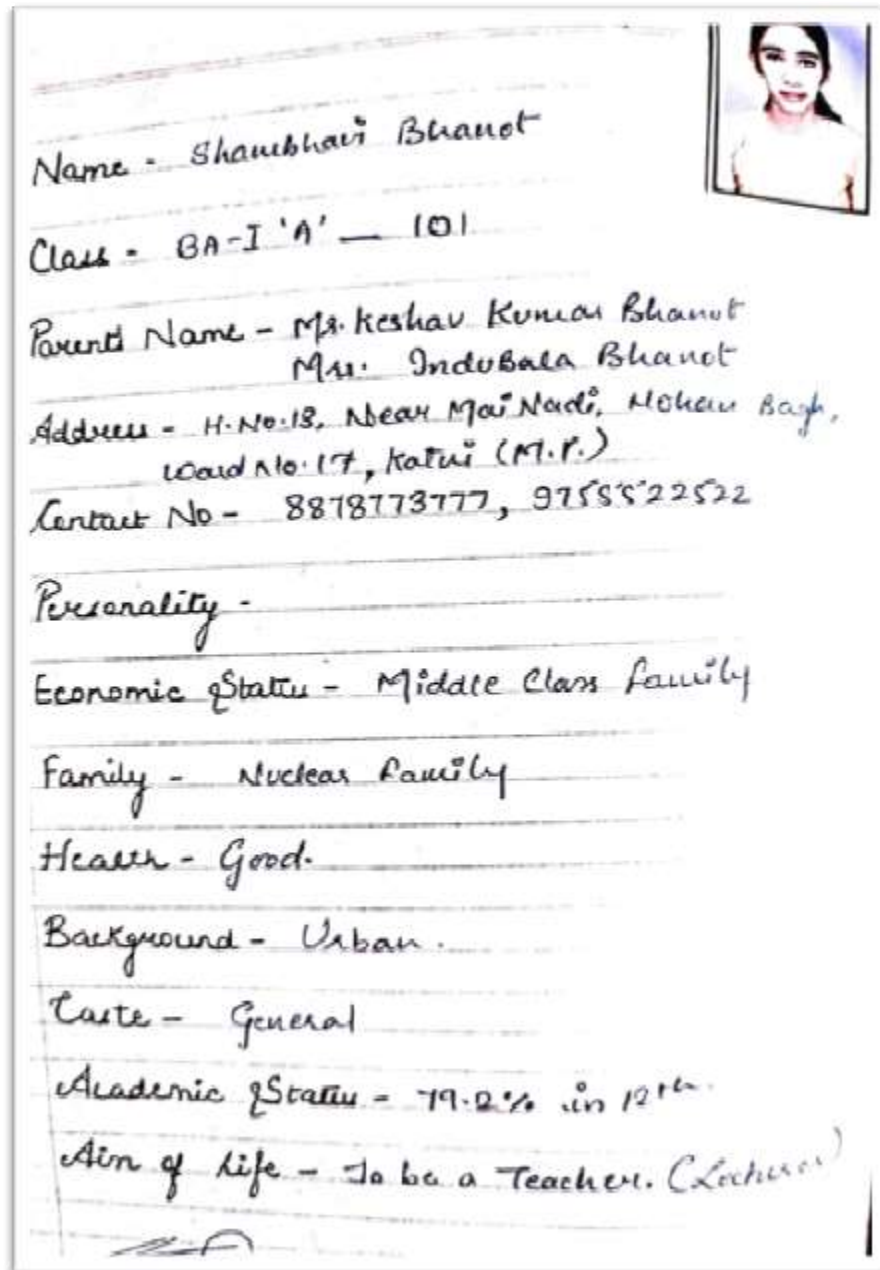 Name - Shambhavi Bhanot
Class - BA-I 'A' — 101
Parents Name - Mr. Keshav Kumar Bhanot
Mrs. InduBala Bhanot
Address - H.No.13, Near Mai Nadi, Mohan Bagh,
Ward No.17, Katni (M.P.)
Contact No - 8878773777, 9755522522
Personality -
Economic Status - Middle Class family
Family - Nuclear family
Health - Good.
Background - Urban.
Caste - General
Academic Status - 79.2% in 12th.
Aim of Life - To be a Teacher. (Lecturer)